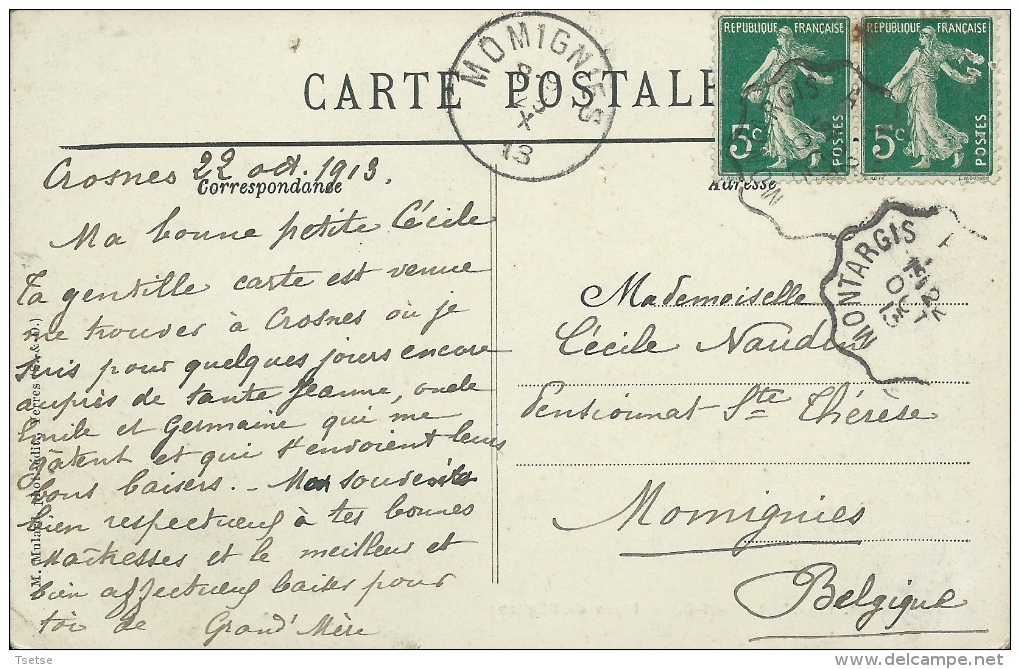 CARTE POSTALE
MOMIGNIES
X
13
REPUBLIQUE FRANÇAISE
5c
POSTES
REPUBLIQUE FRANÇAISE
5c
POSTES
MONTARGIS
Crosnes 22 oct. 1913.
Correspondance
Adresse
Ma bonne petite Cécile
Ta gentille carte est venue
me trouver à Crosnes où je
suis pour quelques jours encore
auprès de tante Jeanne, oncle
Emile et Germaine qui me
gâtent et qui t'envoient leurs
bons baisers. – Mon souvenir
bien respectueux à tes bonnes
Maîtresses et le meilleur et
bien affectueux baiser pour
toi de Grand'Mère
Mademoiselle
Cécile Naudin
Pensionnat Ste Thérèse
Momignies
Belgique
MONTARGIS
Tsetse
delcampe.net